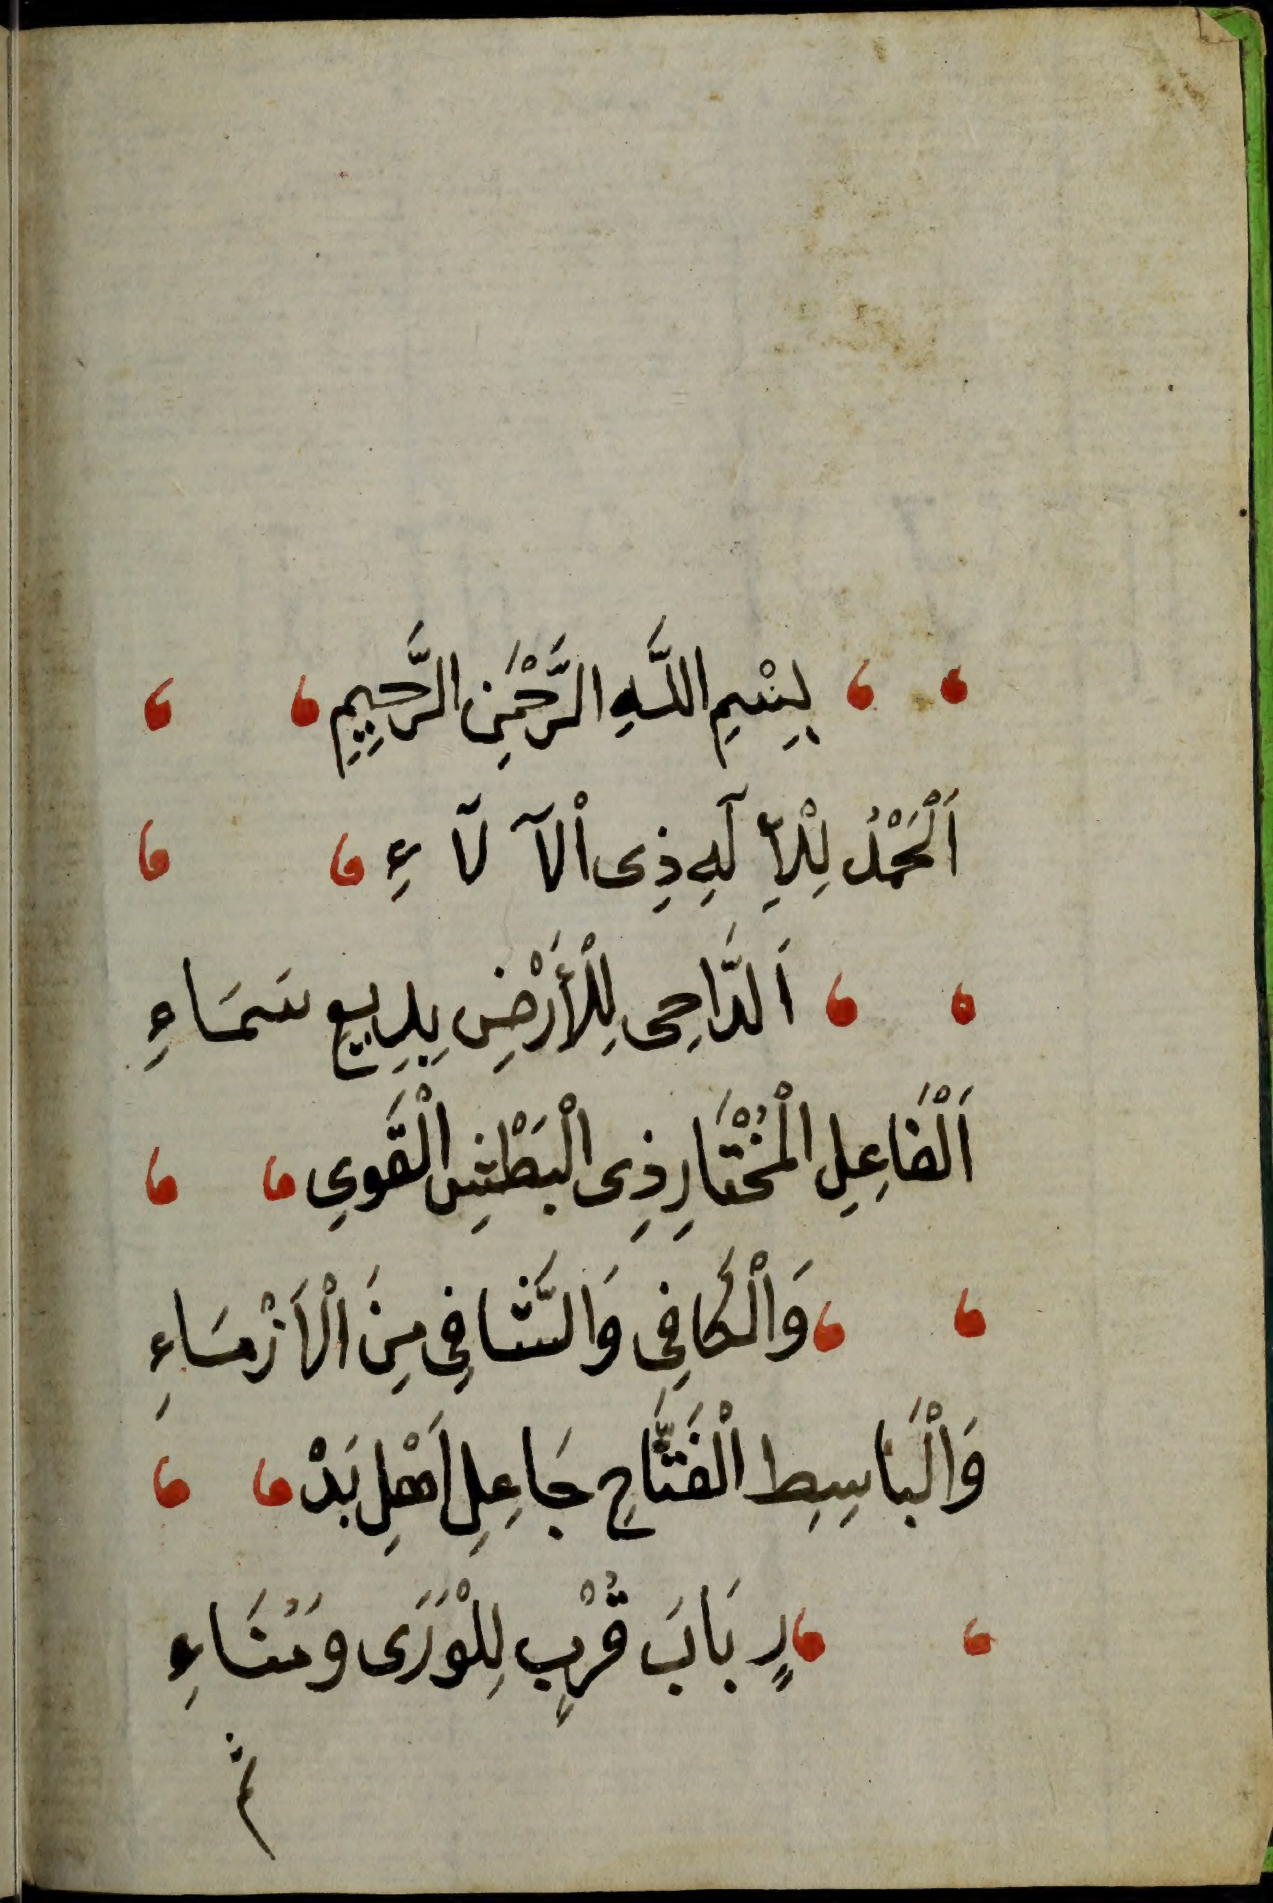 بِسْمِ اللَّهِ الرَّحْمَٰنِ الرَّحِيمِ
اَلْحَمْدُ لِلْإِلَٰهِ ذِى الْآلَآءِ
اَلدَّاحِى لِلْأَرْضِ بِدِيعِ سَمَاءِ
اَلْفَاعِلِ الْمُخْتَارِ ذِى الْبَطْشِ الْقَوِىِ
وَالْكَافِى وَالشَّافِى مِنَ الْأَرْمَسَاءِ
وَالْبَاسِطِ الْفَتَّاحِ جَاعِلِ اَهْلِ بَدْ
رٍ بَابَ قُرْبٍ لِلْوَرَى وَمُنَاءِ
ثم